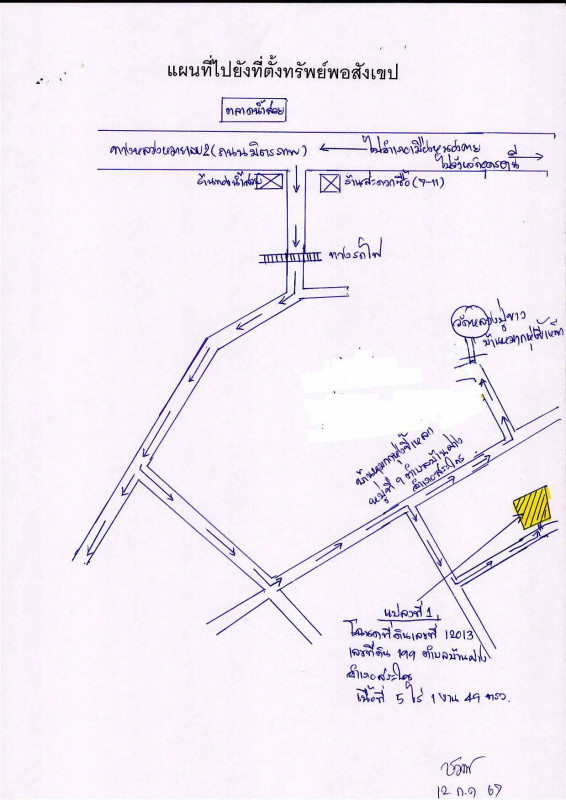 แผนที่ไปยังที่ตั้งทรัพย์พอสังเขป
ตลาดน้ำสวย
ทางหลวงหมายเลข 2 (ถนนมิตรภาพ)
ไปอำเภอเมืองหนองคาย
ไปจังหวัดอุดรธานี
ร้านทองน้ำสวย
ร้านสะดวกซื้อ (7-11)
ทางรถไฟ
วัดหลวงปู่ขาว
หมู่ที่ 9 ตำบลบ้านฝาง
อำเภอสระใคร
แปลงที่ 1
โฉนดที่ดินเลขที่ 12013
เลขที่ดิน 199 ตำบลบ้านฝาง
อำเภอสระใคร
เนื้อที่ 5 ไร่ 1 งาน 49 ตรว.
12 ก.ค 67